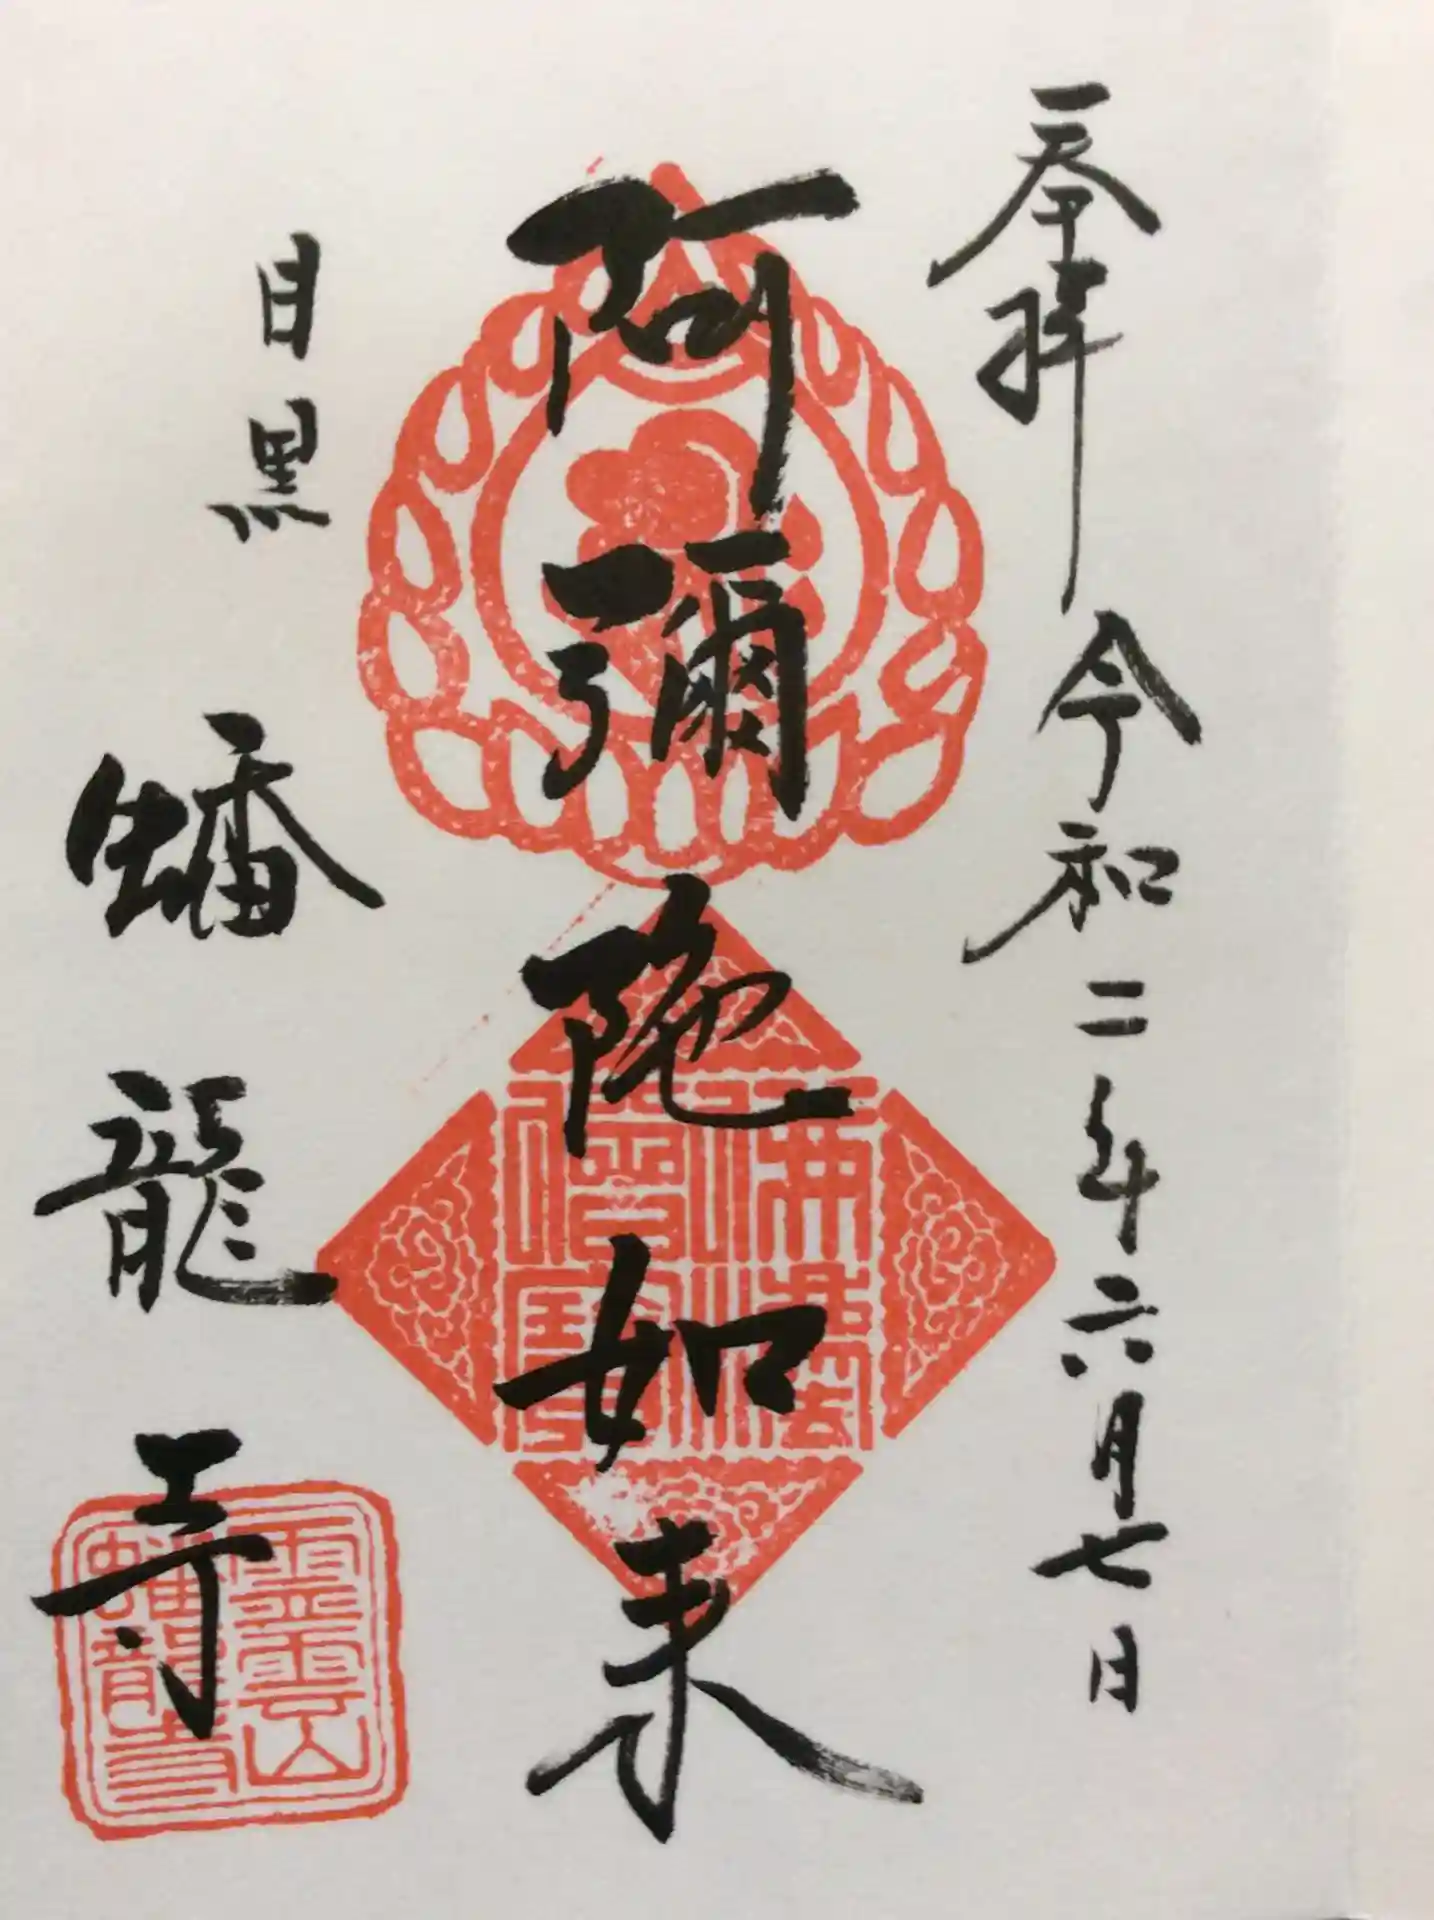 奉拝
令和二年六月七日
阿彌陀如来
佛法僧寶
目黒
蟠龍寺
霊雲山
蟠龍寺